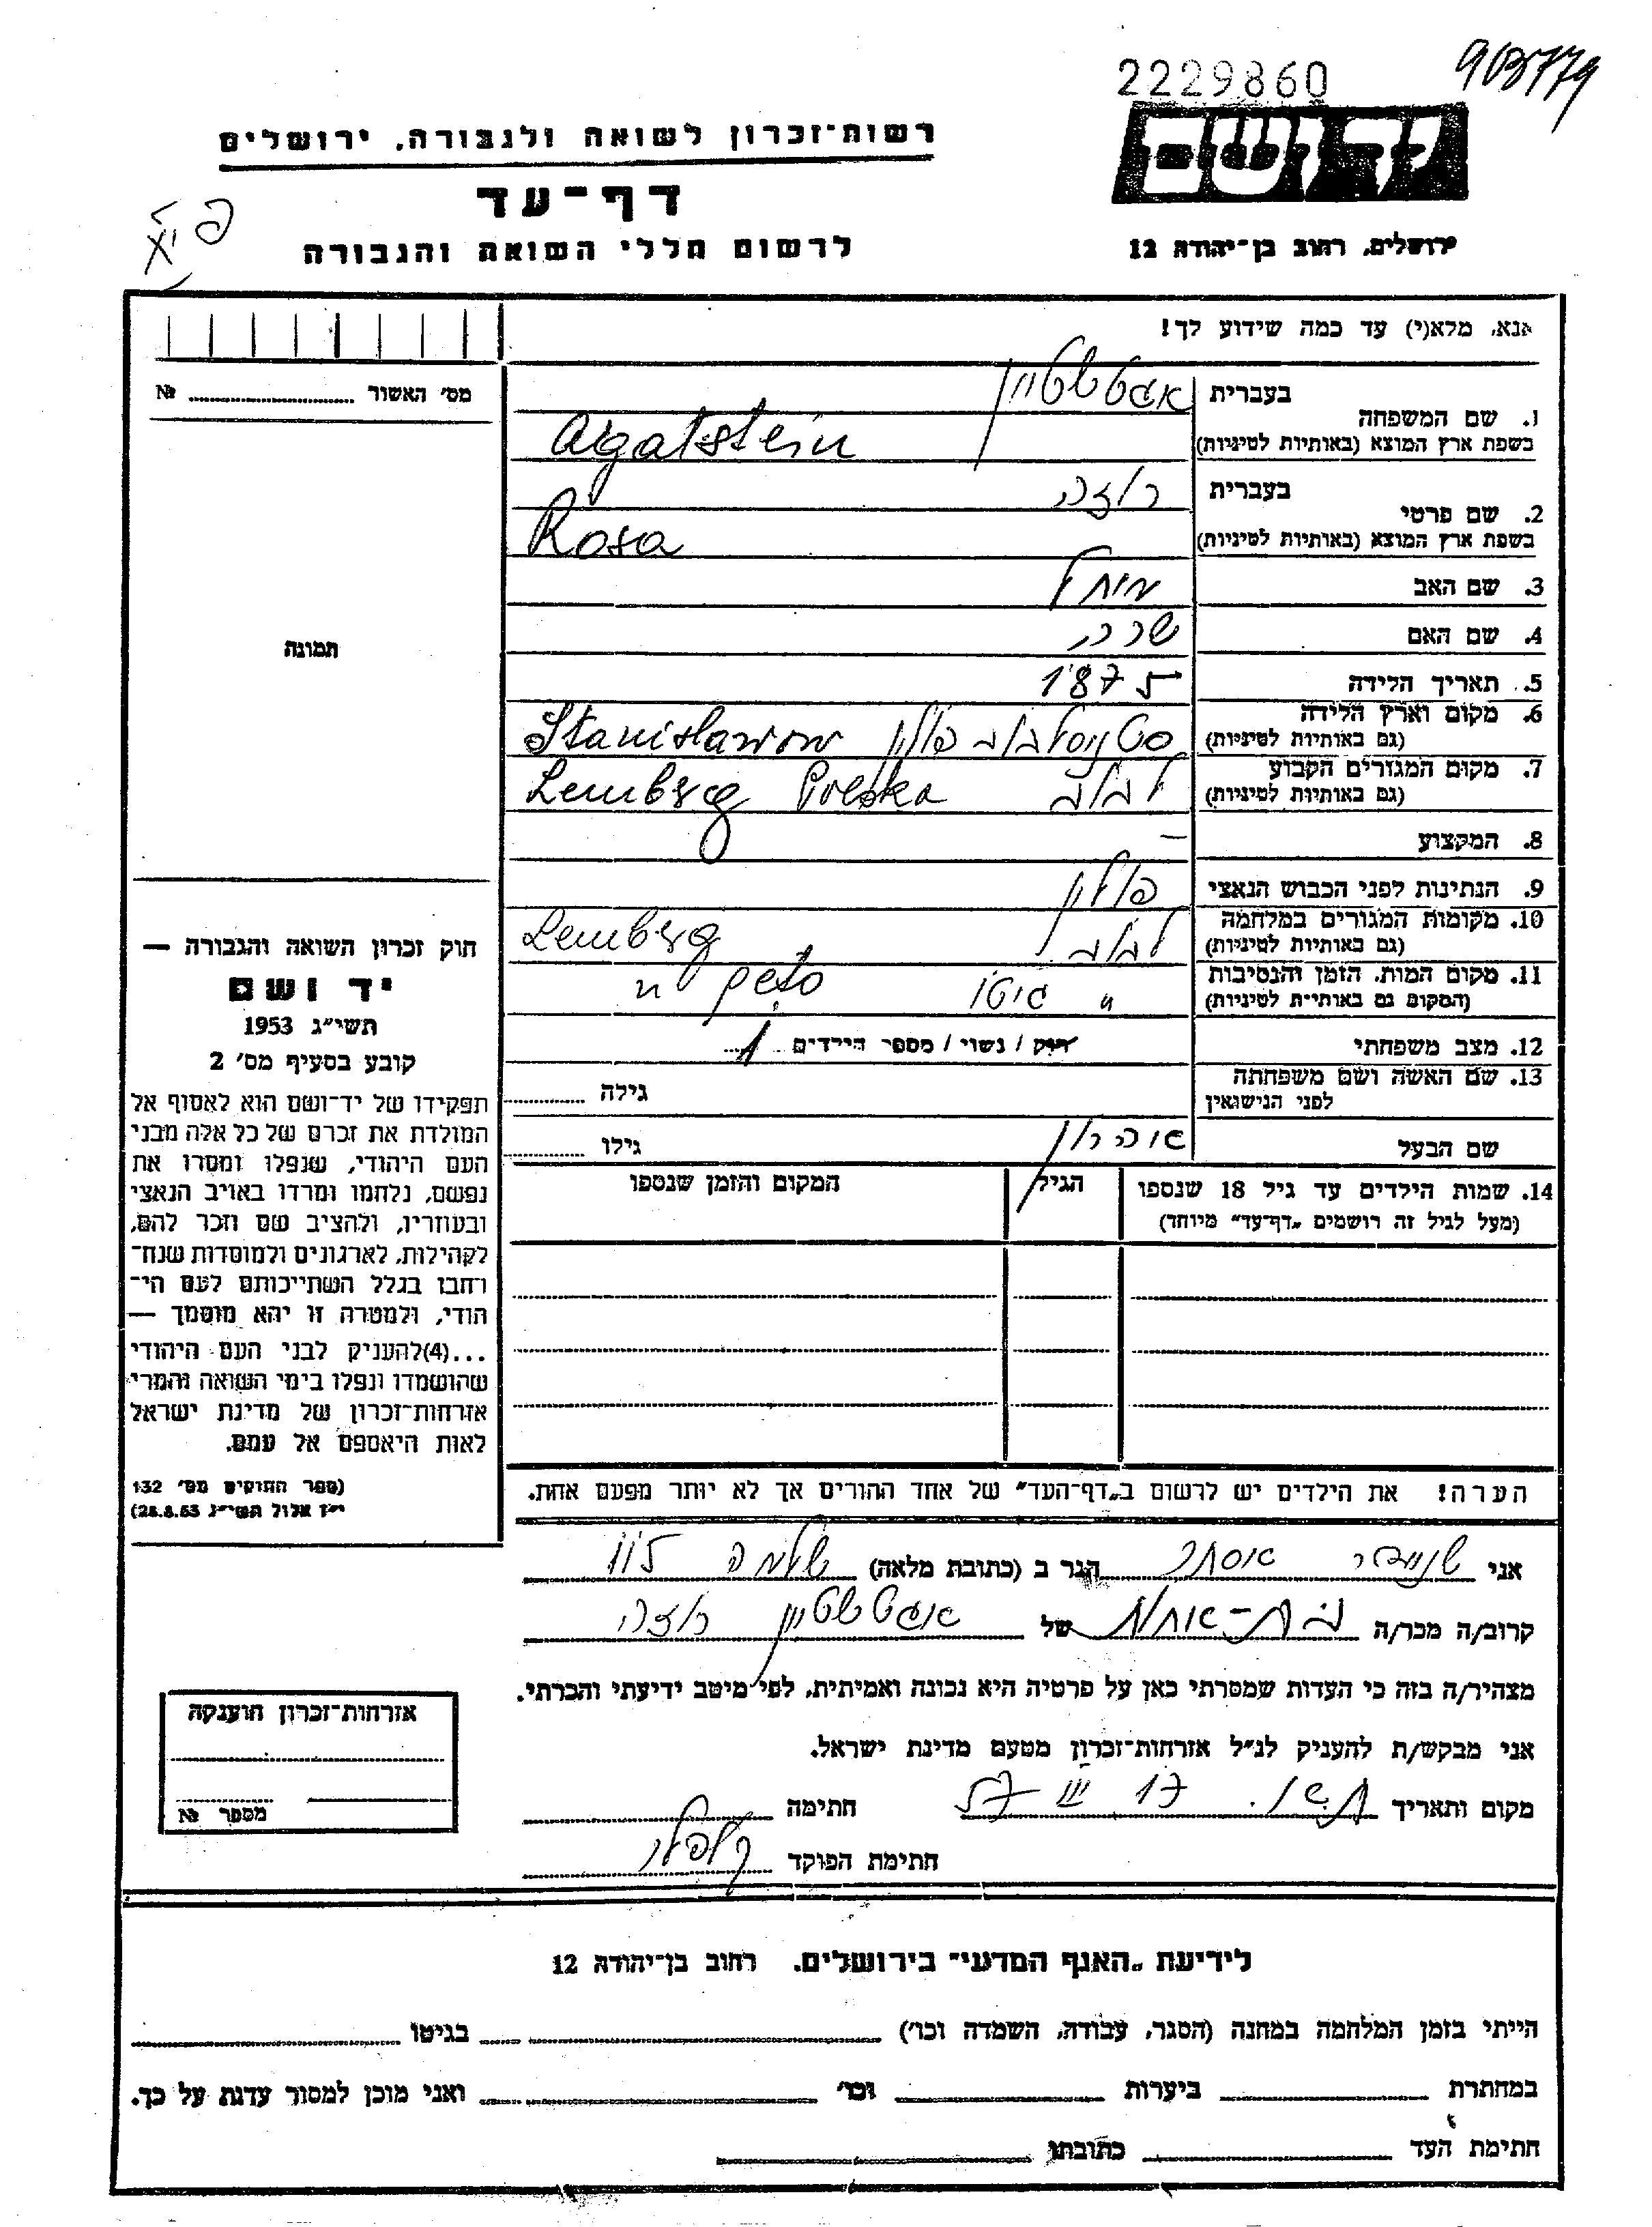 2229860
903779
יד ושם
ירושלים, רחוב בן־יהודה 12
רשות־זכרון לשואה ולגבורה, ירושלים
דף־עד
לרשום חללי השואה והגבורה
אנא, מלא(י) עד כמה שידוע לך!
מס׳ האשור № 
1. שם המשפחה
בעברית אגטשטיין
בשפת ארץ המוצא (באותיות לטיניות) Agatstein
2. שם פרטי
בעברית רוזה
בשפת ארץ המוצא (באותיות לטיניות) Rosa
3. שם האב
4. שם האם שרה
5. תאריך הלידה 1875
6. מקום וארץ הלידה (גם באותיות לטיניות) סטניסלבוב פולין Stanisławow
7. מקום המגורים הקבוע (גם באותיות לטיניות) לבוב Lemberg Polska
8. המקצוע –
9. הנתינות לפני הכבוש הנאצי פולין
10. מקומות המגורים במלחמה (גם באותיות לטיניות) לבוב Lemberg
11. מקום המות, הזמן והנסיבות (המקום גם באותיות לטיניות) " גיטו " geto
12. מצב משפחתי רווק / נשוי / מספר הילדים 1
13. שם האשה ושם משפחתה לפני הנישואין גילה
שם הבעל אהרון גילו
14. שמות הילדים עד גיל 18 שנספו
(מעל לגיל זה רושמים „דף־עד” מיוחד)
הגיל
המקום והזמן שנספו
תמונה
חוק זכרון השואה והגבורה —
יד ושם
תשי״ג 1953
קובע בסעיף מס׳ 2
תפקידו של יד־ושם הוא לאסוף אל
המולדת את זכרם של כל אלה מבני
העם היהודי, שנפלו ומסרו את
נפשם, נלחמו ומרדו באויב הנאצי
ובעוזריו, ולהציב שם וזכר להם,
לקהילות, לארגונים ולמוסדות שנח־
רחבו בגלל השתייכותם לעם הי־
הודי, ולמטרה זו יהא מוסמך —
...(4)להעניק לבני העם היהודי
שהושמדו ונפלו בימי השואה והמרי
אזרחות־זכרון של מדינת ישראל
לאות היאספם אל עמם.
(ספר החוקים מס׳ 132
י״ז אלול תשי״ג 28.8.53)
הערה! את הילדים יש לרשום ב„דף־העד” של אחד ההורים אך לא יותר מפעם אחת.
אני שניידר אסתר הגר ב (כתובת מלאה) שלמה
קרוב/ה מכר/ה בת-אחות של אגטשטיין רוזה
מצהיר/ה בזה כי העדות שמסרתי כאן על פרטיה היא נכונה ואמיתית, לפי מיטב ידיעתי והכרתי.
אני מבקש/ת להעניק לנ״ל אזרחות־זכרון מטעם מדינת ישראל.
מקום ותאריך 17 III 57 חתימה
חתימת הפוקד
אזרחות־זכרון הוענקה
מספר №
לידיעת „האגף המדעי” בירושלים, רחוב בן־יהודה 12
הייתי בזמן המלחמה במחנה (הסגר, עבודה, השמדה וכו׳) בגיטו
במחתרת ביערות וכו׳ ואני מוכן למסור עדות על כך.
חתימת העד כתובתו